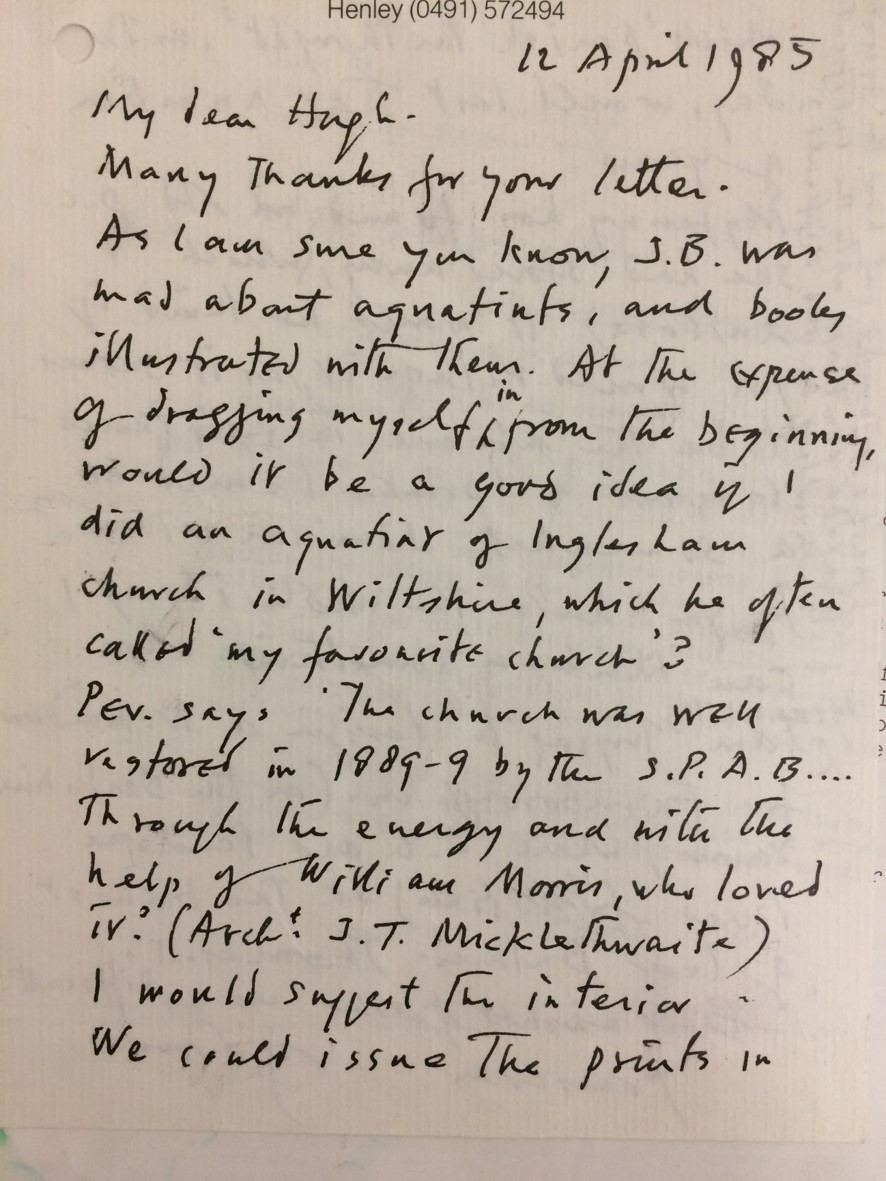 Henley (0491) 572494
12 April 1985
My dear Hugh.
Many Thanks for your letter.
As I am sure you know, J.B. was
mad about aquatints, and books
illustrated with them. At the expense
of dragging myself in from the beginning,
would it be a good idea if I
did an aquatint of Inglesham
church in Wiltshire, which he often
called 'my favourite church'?
Pev. says 'The church was well
restored in 1889-9 by the S.P.A.B....
Through the energy and with the
help of William Morris, who loved
it.' (Archt. J.T. Micklethwaite)
I would suggest the interior -
We could issue The prints in